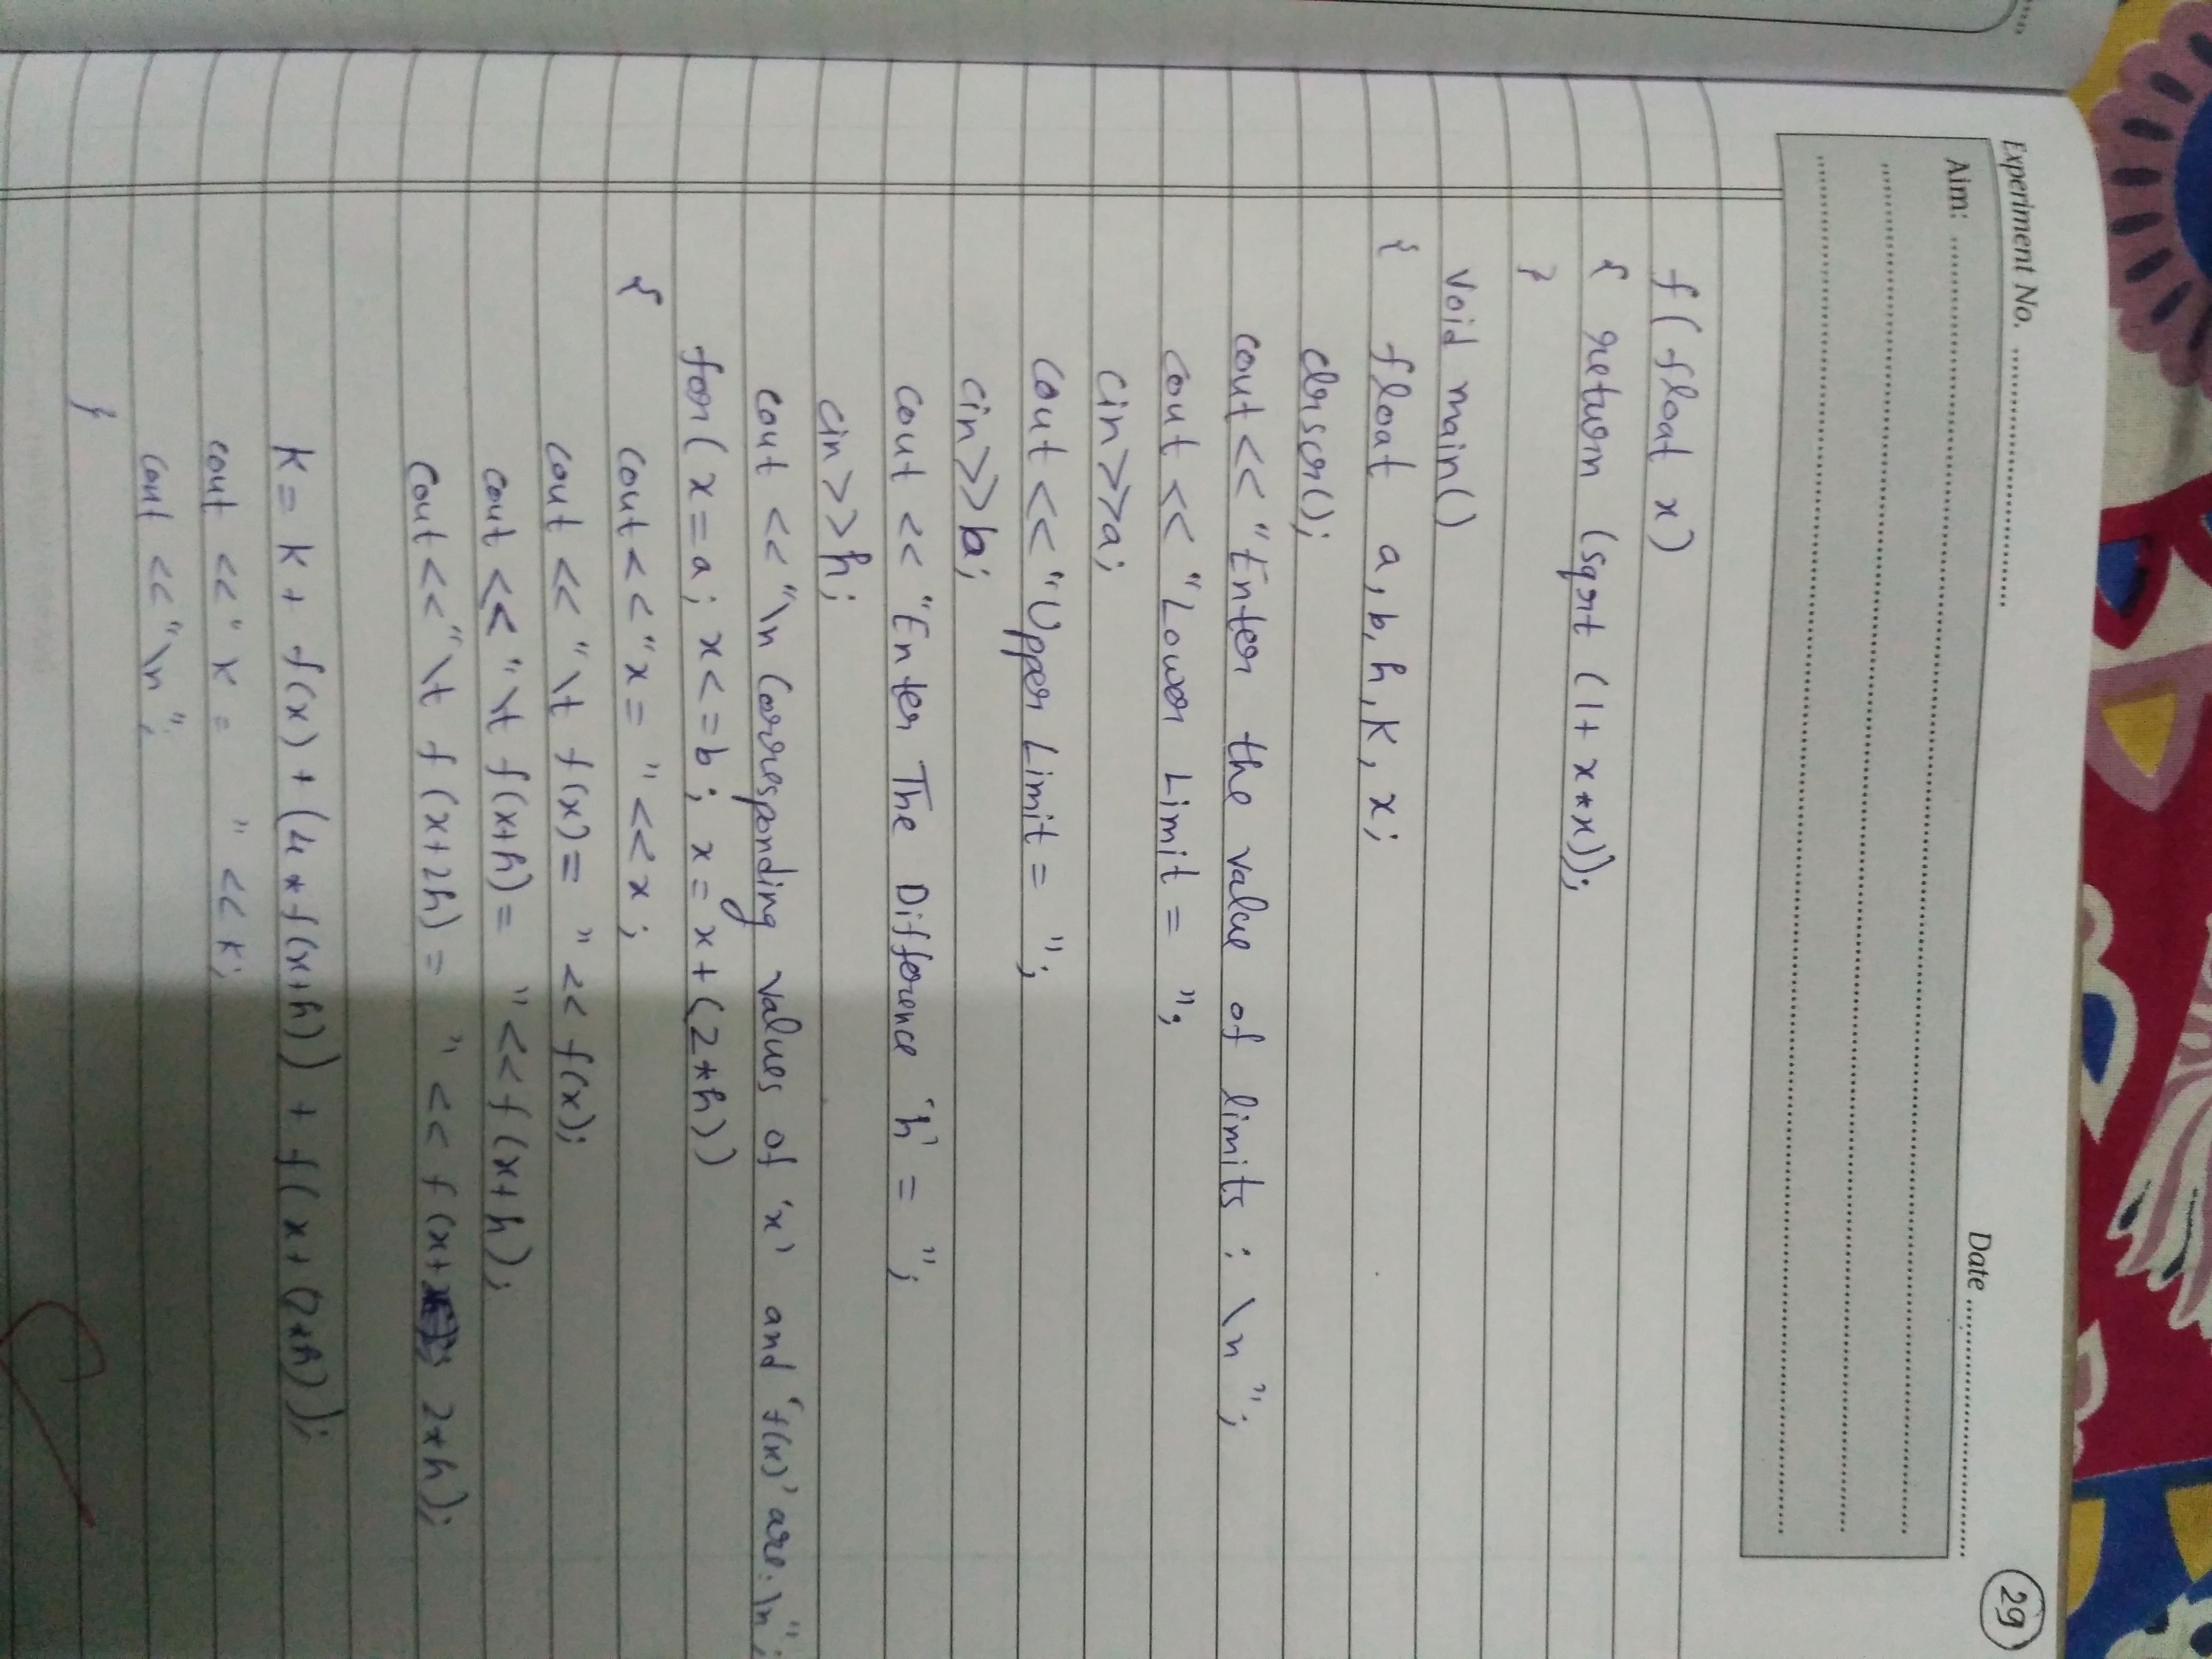 Experiment No.
29
Date
Aim:
f(float x)
{ return (sqrt (1+ x*x));
}
void main()
{ float a, b, h, K, x;
clrscr();
cout << "Enter the value of limits : \n ";
cout << "Lower Limit = ";
cin>>a;
cout << "Upper Limit = ";
cin>>b;
cout << "Enter The Difference 'h' = ";
cin>>h;
cout << "\n Corresponding values of 'x' and 'f(x)' are: \n";
for( x=a; x<=b; x= x+(2*h))
{ cout<<"x= "<<x;
cout << "\t f(x)= " << f(x);
cout << "\t f(x+h)= "<<f(x+h);
cout<<"\t f(x+2h) = " << f(x+ 2*h);
K= K+ f(x) + (4*f(x+h)) + f(x+(2*h));
cout <<" K = " << K;
cout <<"\n";
}